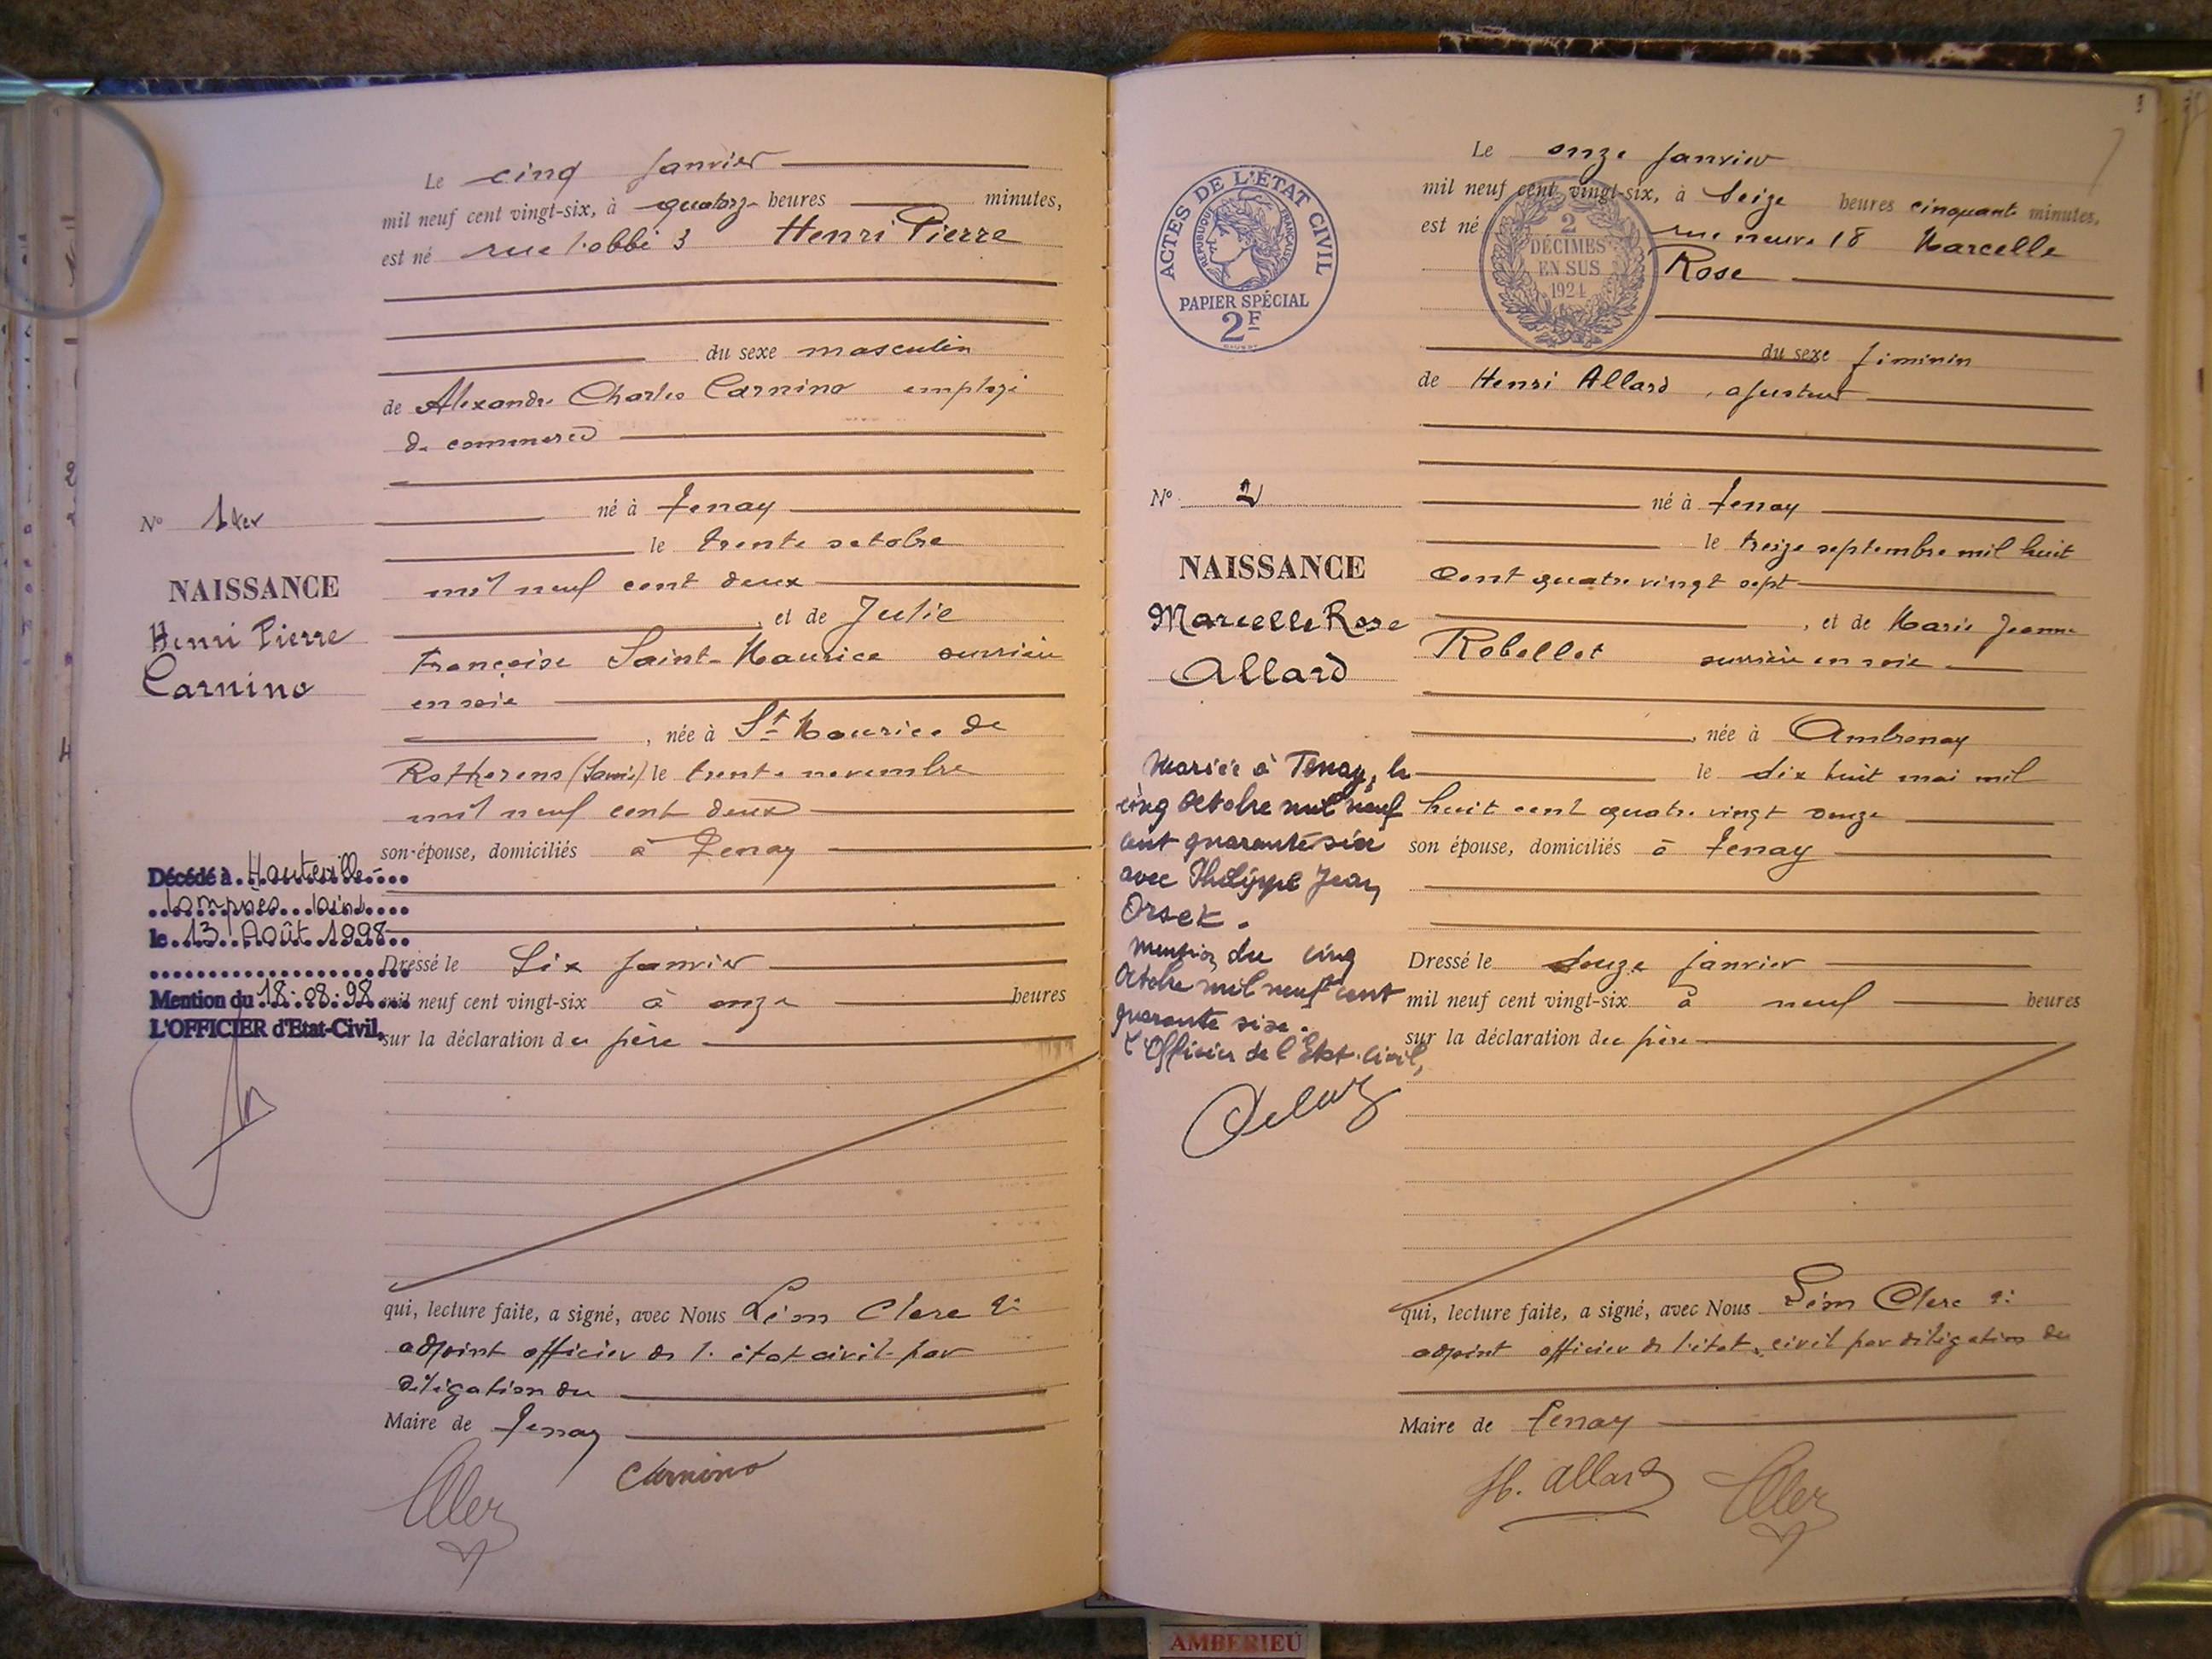 Le cinq Janvier
mil neuf cent vingt-six, à quatorze heures minutes,
est né rue l'abbé 3 Henri Pierre
du sexe masculin
de Alexandre Charles Carnino employé
de commerce
né à Tenay
le trente octobre
mil neuf cent deux
, et de Julie
Françoise Saint-Maurice ouvrière
en soie
, née à St Maurice de
Rotherens (Savoie) le trente novembre
mil neuf cent deux
son épouse, domiciliés à Tenay
Dressé le Six Janvier
mil neuf cent vingt-six à onze heures
sur la déclaration du père
qui, lecture faite, a signé, avec Nous Léon Clerc 2e
adjoint officier de l'état civil par
délégation du
Maire de Tenay
Carnino
No 1er
NAISSANCE
Henri Pierre
Carnino
Décédé à Hauteville-
Lompnes
le 13 Août 1998
Mention du 18.08.98
L'OFFICIER d'Etat-Civil,
ACTES DE L'ÉTAT CIVIL
RÉPUBLIQUE FRANÇAISE
PAPIER SPÉCIAL
2F
2
DÉCIMES
EN SUS
1924
Le onze Janvier
mil neuf cent vingt-six, à Seize heures cinquante minutes,
est né rue neuve 18 Marcelle
Rose
du sexe féminin
de Henri Allard, ajusteur
né à Tenay
le treize septembre mil huit
cent quatre vingt sept
, et de Marie Jeanne
Robellet ouvrière en soie
, née à Ambronay
le dix huit mai mil
huit cent quatre vingt onze
son épouse, domiciliés à Tenay
Dressé le douze janvier
mil neuf cent vingt-six à neuf heures
sur la déclaration du père
qui, lecture faite, a signé, avec Nous Léon Clerc 2e
adjoint officier de l'état civil par délégation du
Maire de Tenay
H. Allard
No 2
NAISSANCE
Marcelle Rose
Allard
Mariée à Tenay, le
cinq Octobre mil neuf
cent quarante six
avec Philippe Jean
Orset.
Mention du cinq
Octobre mil neuf cent
quarante six.
L'Officier de l'Etat-Civil,
AMBERIEU